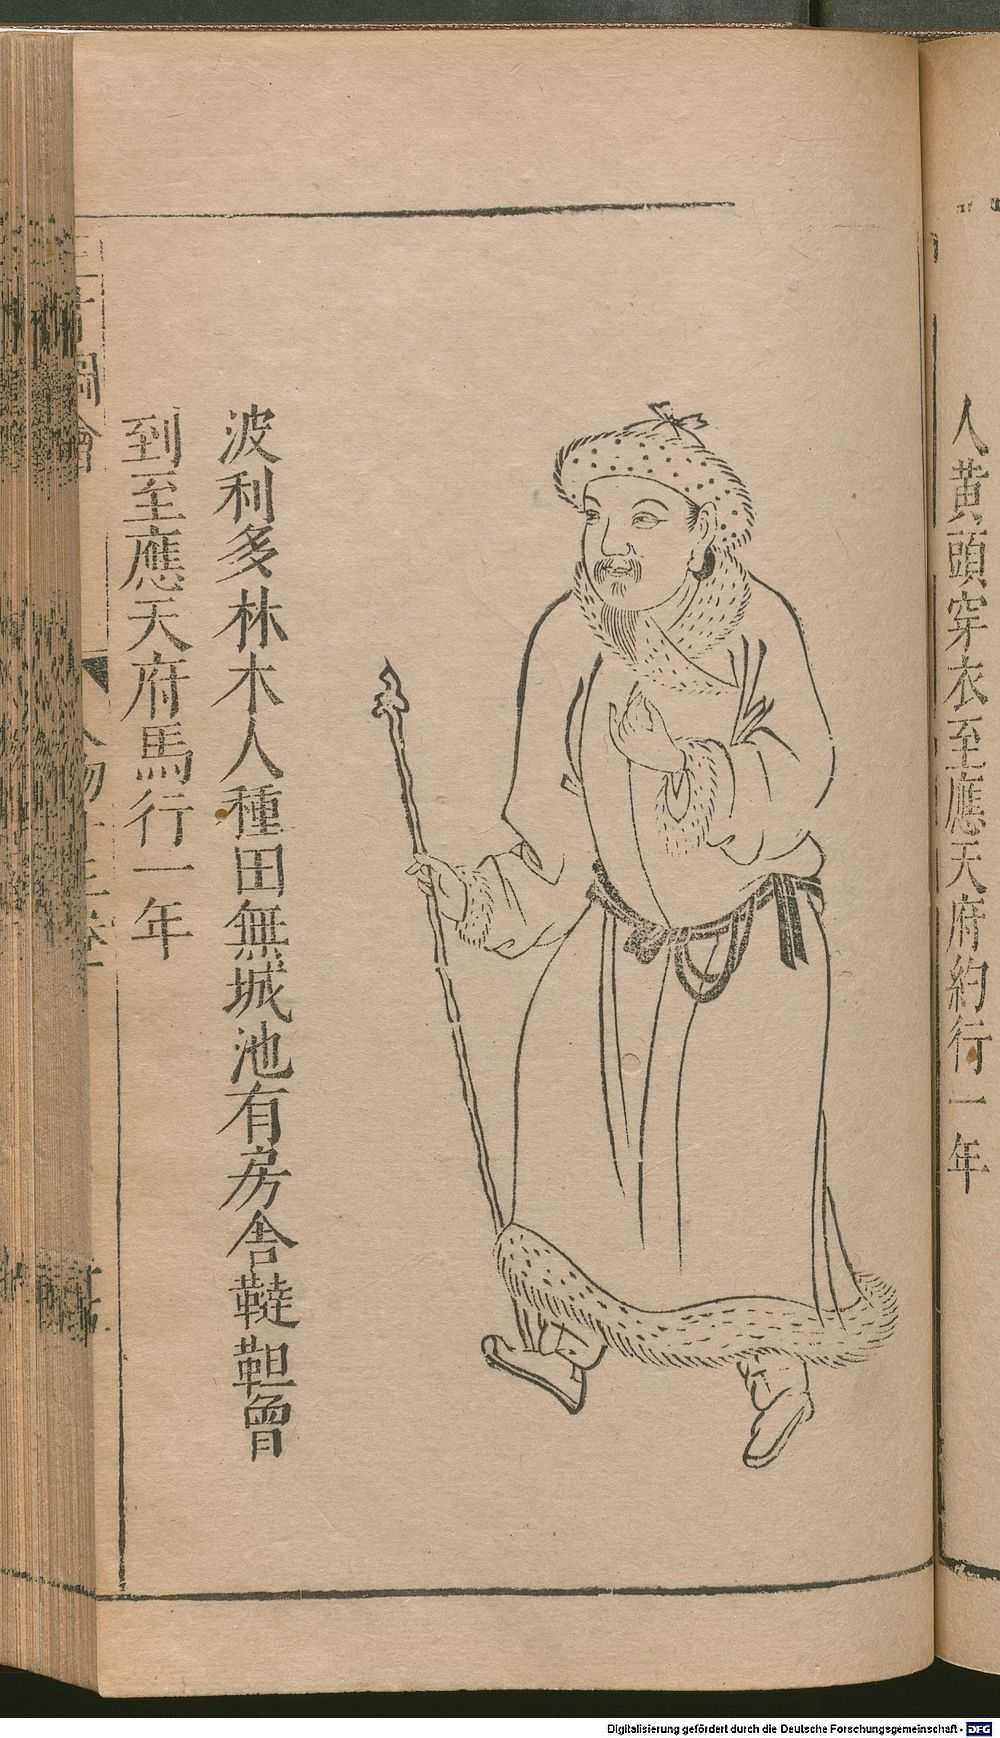 人黄頭穿衣至應天府約行一年
波利多林木人種田無城池有房舎韃靼曾
到至應天府馬行一年
Digitalisierung gefördert durch die Deutsche Forschungsgemeinschaft - DFG